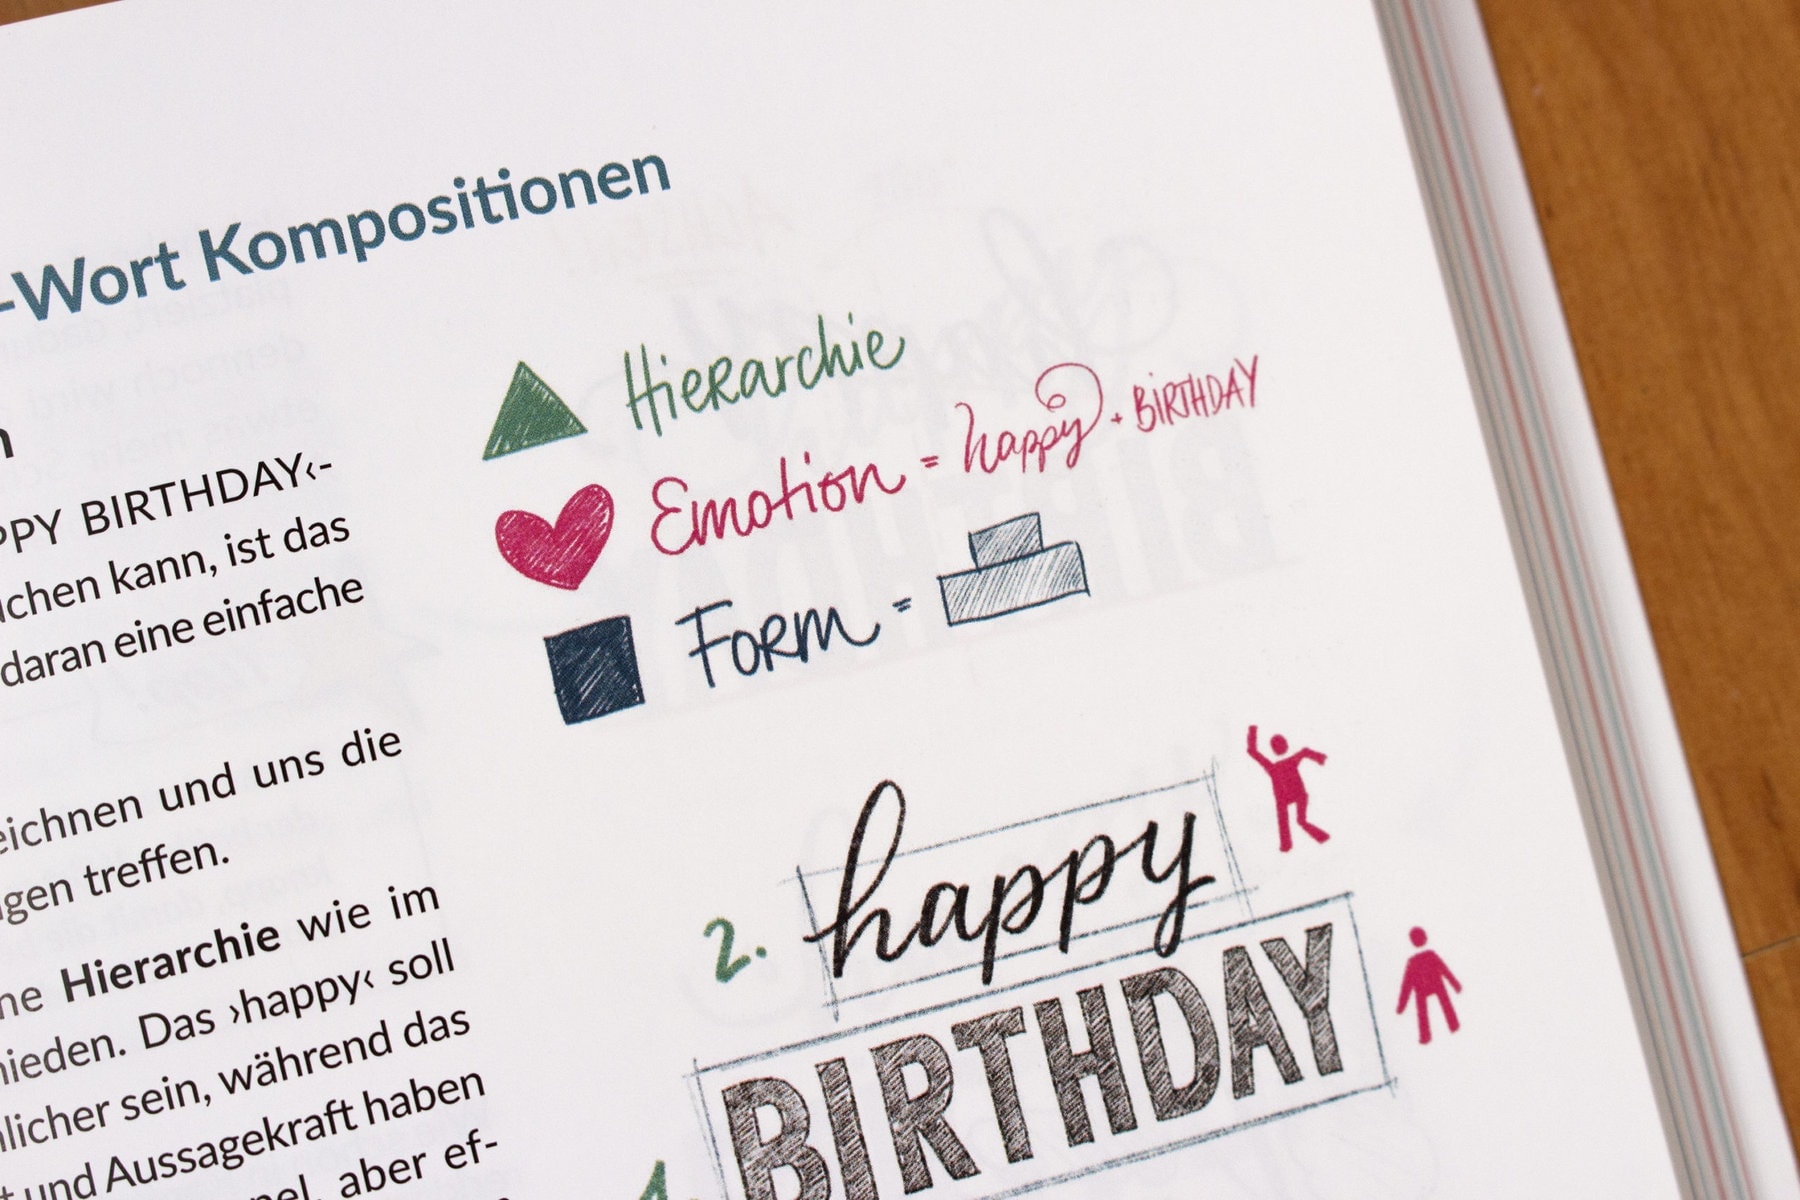 -Wort Kompositionen
BIRTHDAY‹-
kann, ist das
daran eine einfache
und uns die
treffen.
Hierarchie wie im
Das ›happy‹ soll
sein, während das
und Aussagekraft haben
aber ef-
Hierarchie
Emotion = happy + BIRTHDAY
Form =
2. happy
BIRTHDAY
1.